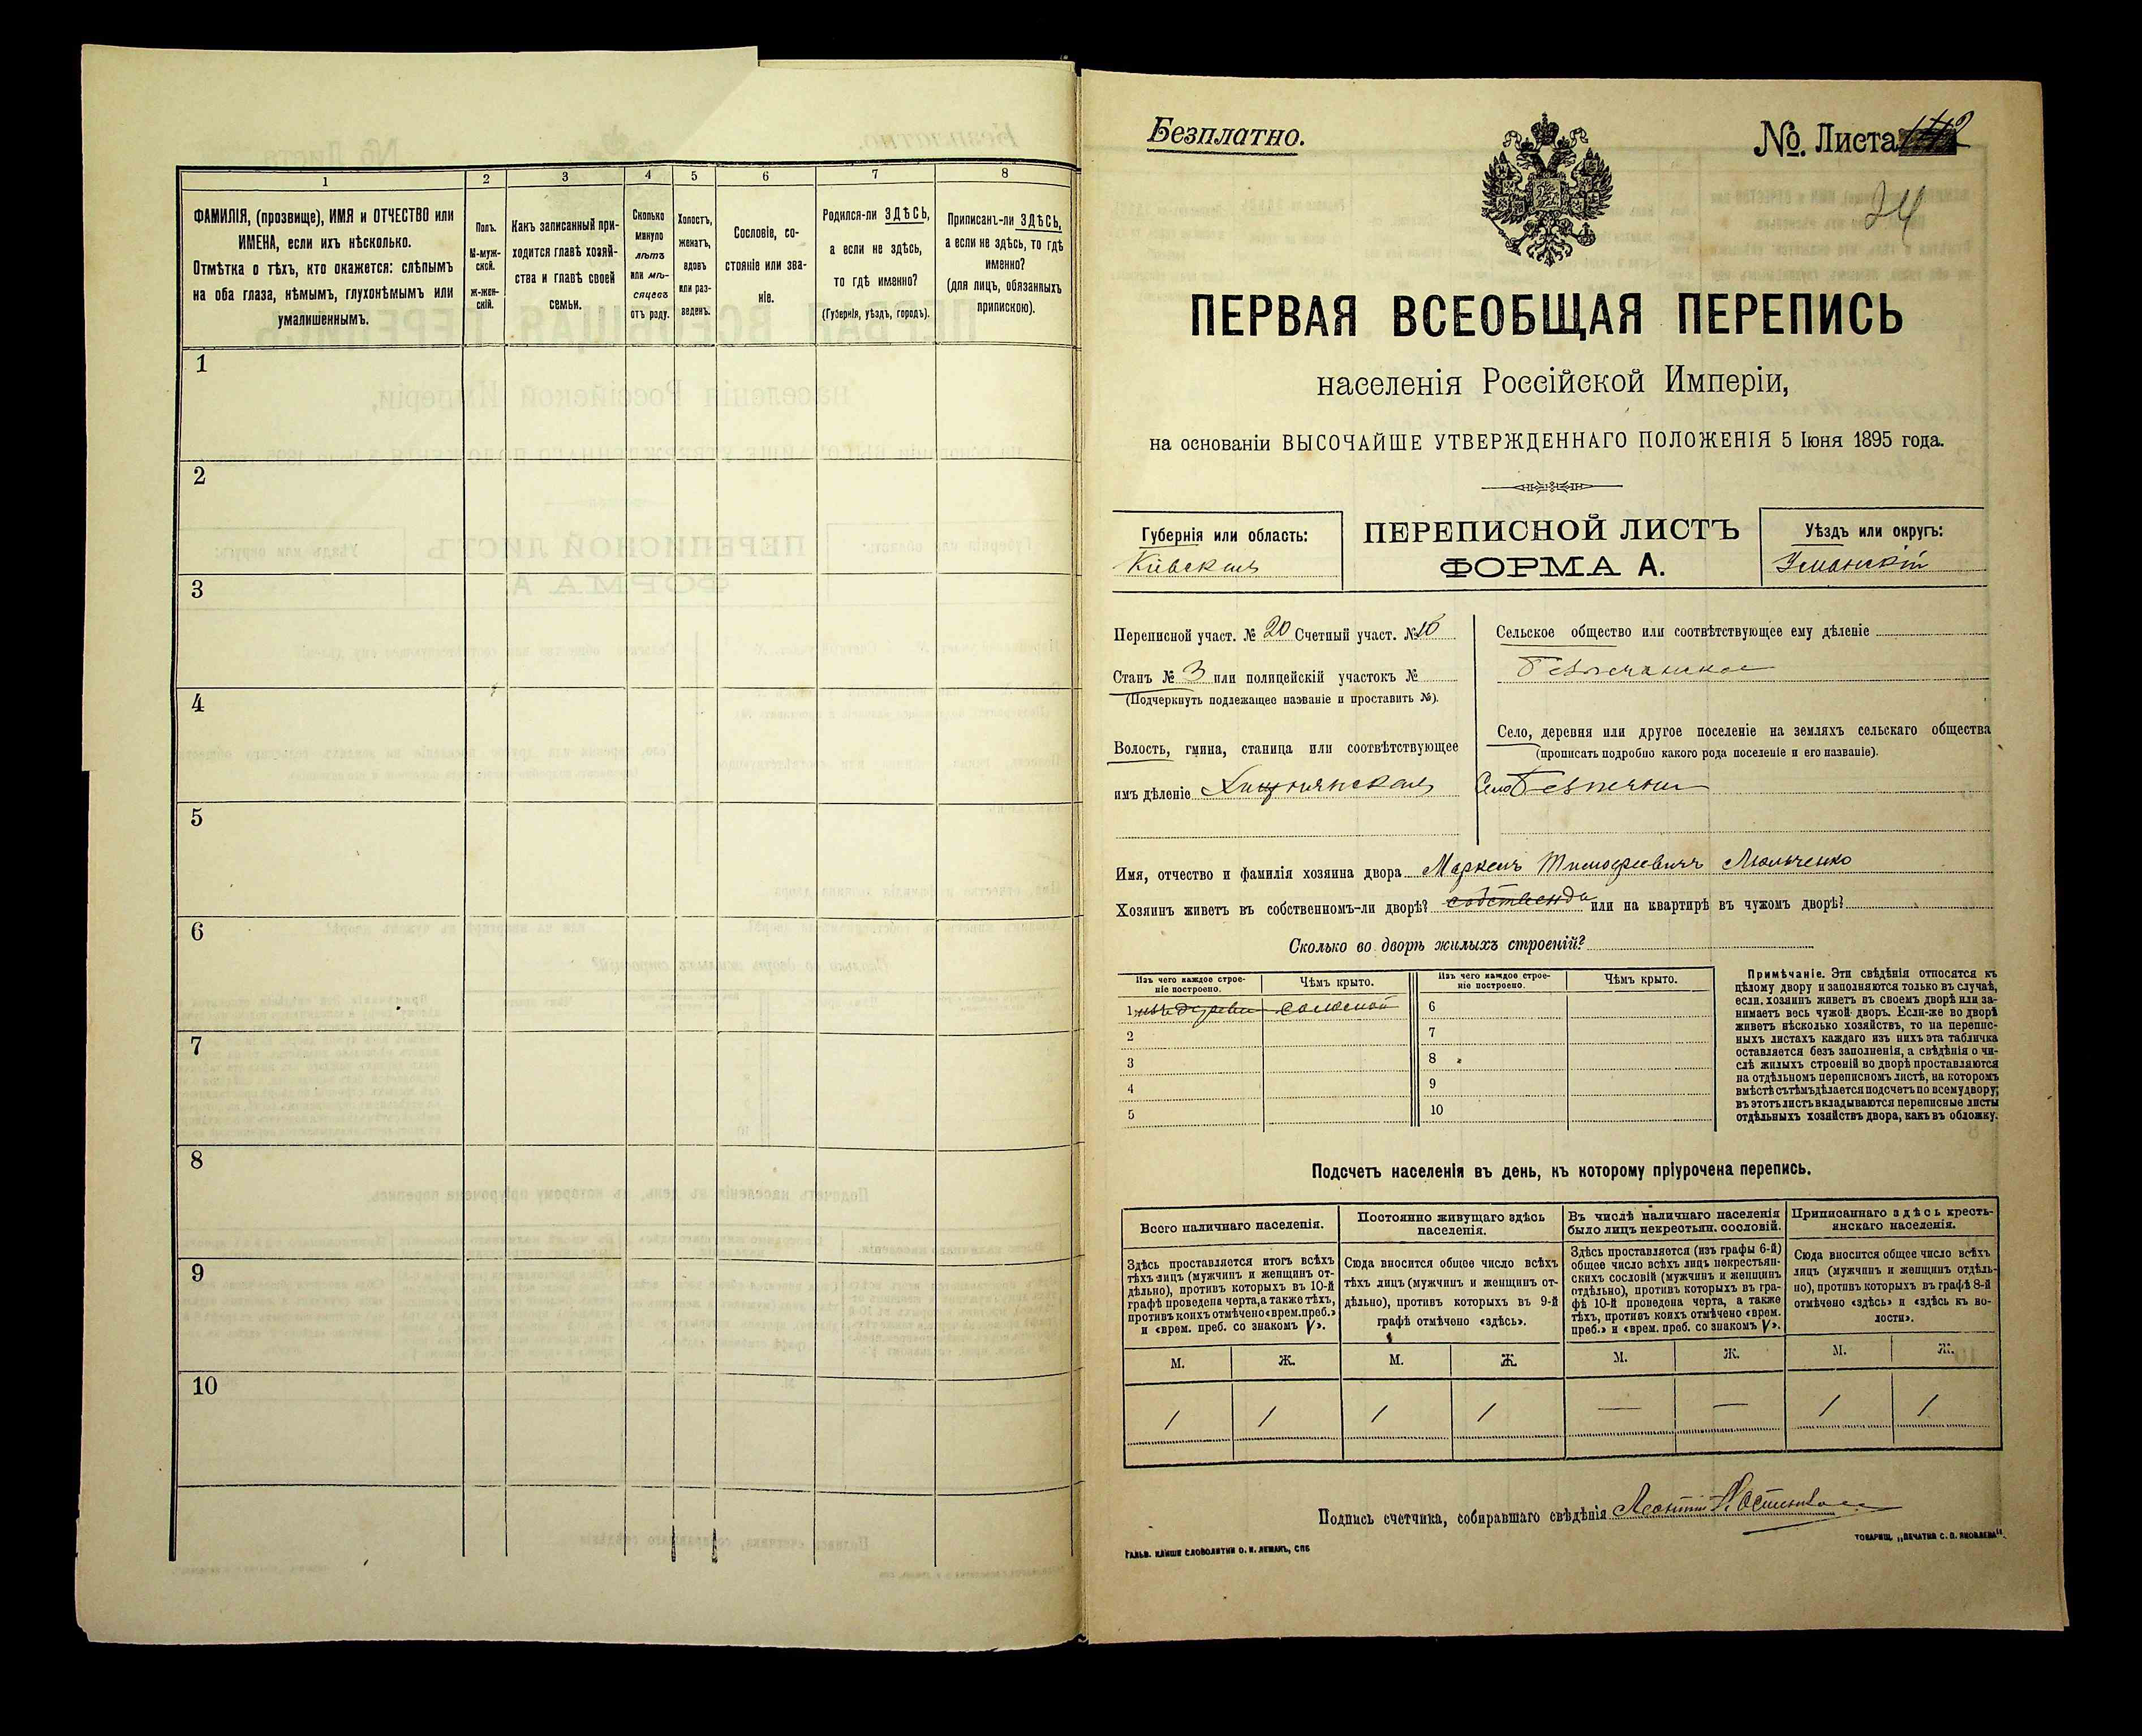 1
2
3
4
5
6
7
8
ФАМИЛІЯ, (прозвище), ИМЯ и ОТЧЕСТВО или
ИМЕНА, если ихъ нѣсколько.
Отмѣтка о тѣхъ, кто окажется: слѣпымъ
на оба глаза, нѣмымъ, глухонѣмымъ или
умалишеннымъ.
Полъ.
М-муж-
ской.
ж-жен-
скій.
Какъ записанный при-
ходится главѣ хозяй-
ства и главѣ своей
семьи.
Сколько
минуло
лѣтъ
или мѣ-
сяцевъ
отъ роду.
Холостъ,
женатъ,
вдовъ
или раз-
веденъ.
Сословіе, со-
стояніе или зва-
ніе.
Родился-ли ЗДѢСЬ,
а если не здѣсь,
то гдѣ именно?
(Губернія, уѣздъ, городъ).
Приписанъ-ли ЗДѢСЬ,
а если не здѣсь, то гдѣ
именно?
(для лицъ, обязанныхъ
припискою).
1
2
3
4
5
6
7
8
9
10
Безплатно.
№. Листа
24
ПЕРВАЯ ВСЕОБЩАЯ ПЕРЕПИСЬ
населенія Россійской Имперіи,
на основаніи ВЫСОЧАЙШЕ УТВЕРЖДЕННАГО ПОЛОЖЕНІЯ 5 Іюня 1895 года.
Губернія или область:
Кіевская
ПЕРЕПИСНОЙ ЛИСТЪ
ФОРМА А.
Уѣздъ или округъ:
Уманскій
Переписной участ. № 20 Счетный участ. №
Станъ № 3 или полицейскій участокъ №
(Подчеркнуть подлежащее названіе и проставить №).
Волость, гмина, станица или соотвѣтствующее
имъ дѣленіе
Сельское общество или соотвѣтствующее ему дѣленіе
Безпечанское
Село, деревня или другое поселеніе на земляхъ сельскаго общества
(прописать подробно какого рода поселеніе и его названіе).
Село
Имя, отчество и фамилія хозяина двора Маркелъ Тимофеевичъ
Хозяинъ живетъ въ собственномъ-ли дворѣ? или на квартирѣ въ чужомъ дворѣ?
Сколько во дворѣ жилыхъ строеній?
Изъ чего каждое строе-
ніе построено.
Чѣмъ крыто.
Изъ чего каждое строе-
ніе построено.
Чѣмъ крыто.
1 соломой
2
3
4
5
6
7
8
9
10
Примѣчаніе. Эти свѣдѣнія относятся къ
цѣлому двору и заполняются только въ случаѣ,
если хозяинъ живетъ въ своемъ дворѣ или за-
нимаетъ весь чужой дворъ. Если-же во дворѣ
живетъ нѣсколько хозяйствъ, то на перепис-
ныхъ листахъ каждаго изъ нихъ эта табличка
оставляется безъ заполненія, а свѣдѣнія о чи-
слѣ жилыхъ строеній во дворѣ проставляются
на отдѣльномъ переписномъ листѣ, на которомъ
вмѣстѣ съ тѣмъ дѣлается подсчетъ по всему двору;
въ этотъ листъ вкладываются переписные листы
отдѣльныхъ хозяйствъ двора, какъ въ обложку.
Подсчетъ населенія въ день, къ которому пріурочена перепись.
Всего наличнаго населенія.
Здѣсь проставляется итогъ всѣхъ
тѣхъ лицъ (мужчинъ и женщинъ от-
дѣльно), противъ которыхъ въ 10-й
графѣ проведена черта, а также тѣхъ,
противъ коихъ отмѣчено «врем. преб.»
и «врем. преб. со знакомъ V».
Постоянно живущаго здѣсь
населенія.
Сюда вносится общее число всѣхъ
тѣхъ лицъ (мужчинъ и женщинъ от-
дѣльно), противъ которыхъ въ 9-й
графѣ отмѣчено «здѣсь».
Въ числѣ наличнаго населенія
было лицъ некрестьян. сословій.
Здѣсь проставляется (изъ графы 6-й)
общее число всѣхъ лицъ некрестьян-
скихъ сословій (мужчинъ и женщинъ
отдѣльно), противъ которыхъ въ гра-
фѣ 10-й проведена черта, а также
тѣхъ, противъ коихъ отмѣчено «врем.
преб.» и «врем. преб. со знакомъ V».
Приписаннаго здѣсь кресть-
янскаго населенія.
Сюда вносится общее число всѣхъ
лицъ (мужчинъ и женщинъ отдѣль-
но), противъ которыхъ въ графѣ 8-й
отмѣчено «здѣсь» и «здѣсь къ во-
лости».
М. Ж. М. Ж. М. Ж. М. Ж.
1 1 1 1 — — 1 1
Подпись счетчика, собиравшаго свѣдѣнія Леонтій
ГАЛЬВ. КЛИШЕ СЛОВОЛИТНИ О. И. ЛЕМАНЪ, СПБ
ТОВАРИЩ. „ПЕЧАТНЯ С. П. ЯКОВЛЕВА".